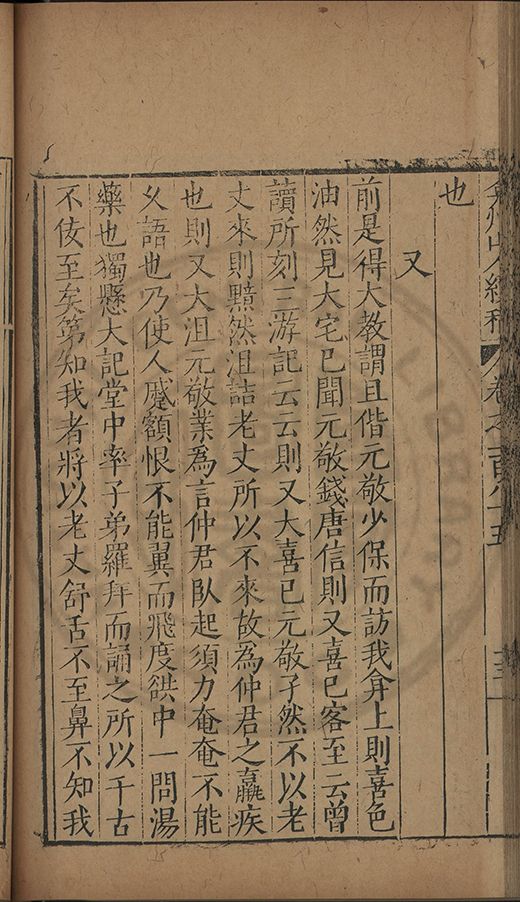 弇州山人續稿 卷之一百八十五 十三
也
又
前是得大教謂且偕元敬少保而訪我弇上則喜色
油然見大宅已聞元敬錢唐信則又喜已客至云曾
讀所刻三游記云云則又大喜已元敬孑然不以老
丈來則黯然沮詰老丈所以不來故為仲君之羸疾
也則又大沮元敬業為言仲君臥起須力奄奄不能
乆語也乃使人蹙額恨不能翼而飛度谼中一問湯
藥也獨懸大記堂中率子弟羅拜而誦之所以千古
不佞至矣第知我者將以老丈舒舌不至鼻不知我